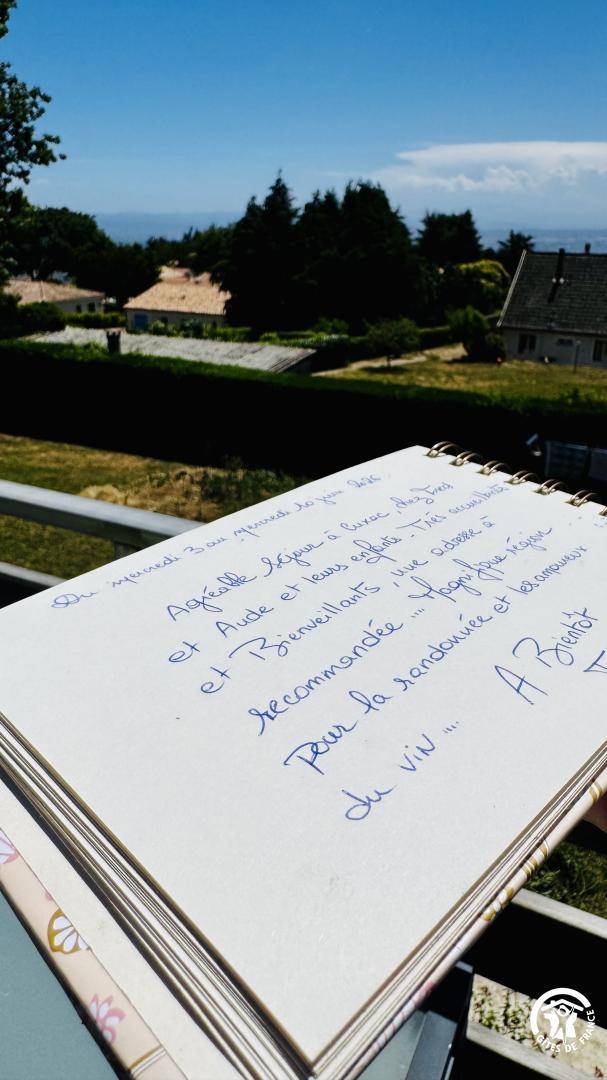 Du mercredi 3 au mercredi 10 juin 2026.
Agréable séjour à Lurac, chez Fred
et Aude et leurs enfants - Très accueillants
et Bienveillants, une adresse à
recommandée ... Magnifique région
pour la randonnée et les amoureux
du vin ...
A Bientôt
GÎTES DE FRANCE